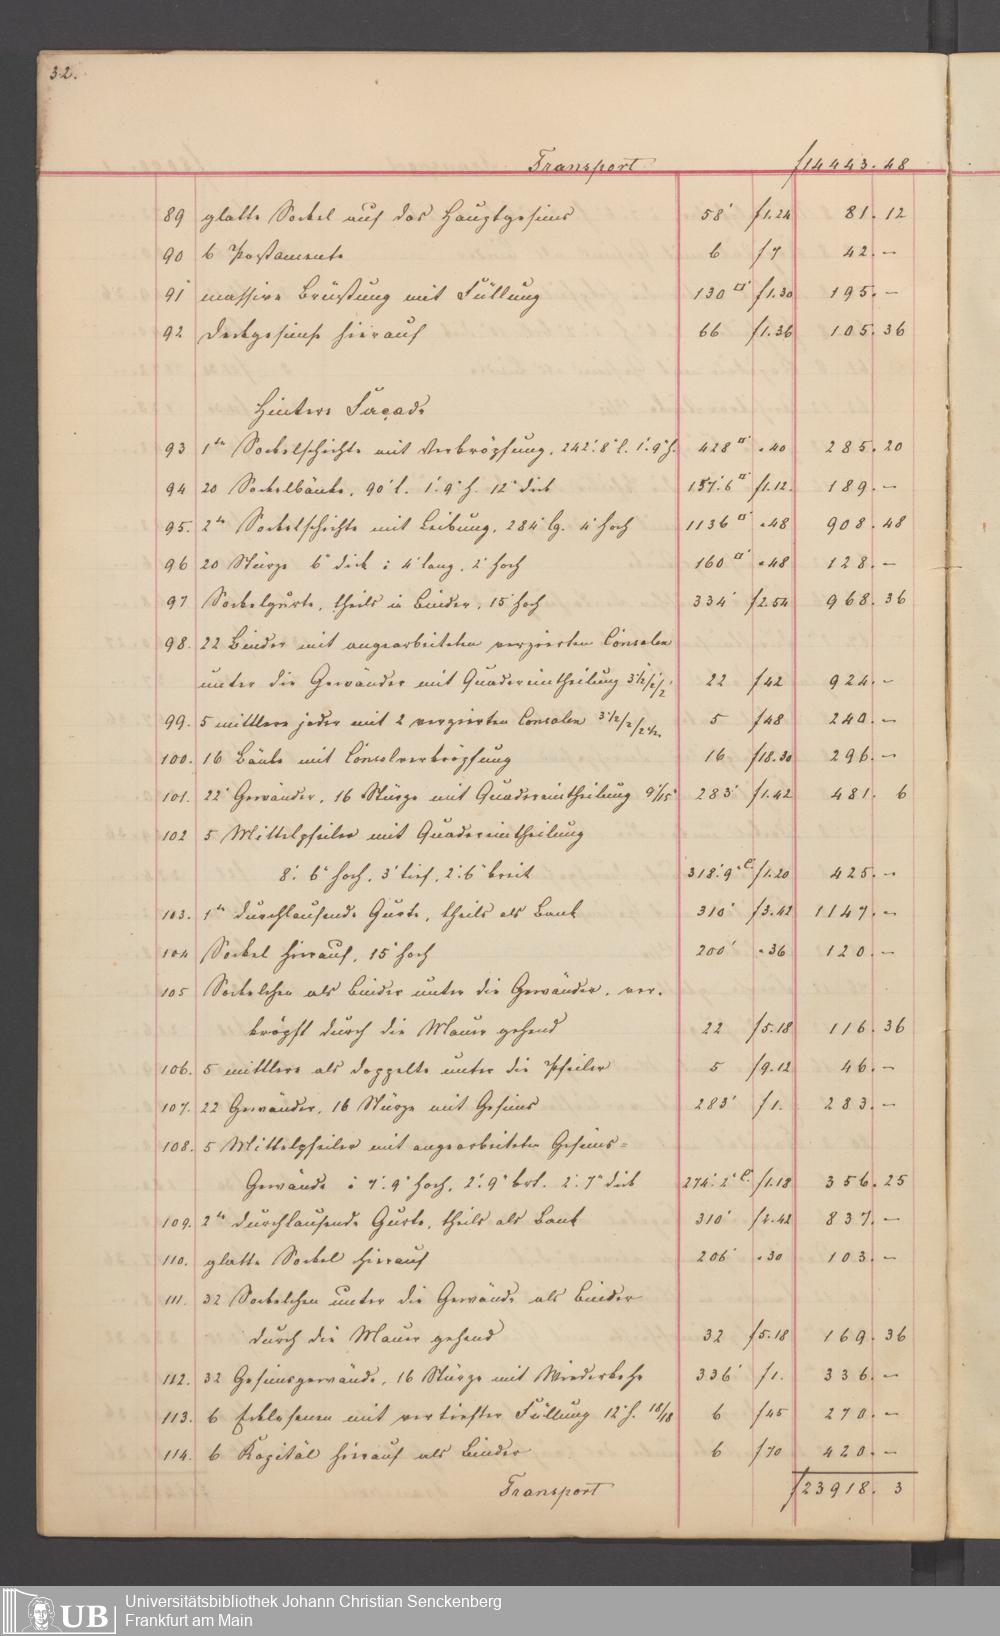 32.
Transport f 14443. 48
89 glatte Sockel auf das Hauptgesims 58' f 1.24 81. 12
90 6 Postamente 6 f 7 42. –
91 massive Brüstung mit Füllung 130 □' f 1.30 195. –
92 Deckgesimse hierauf 66 f 1.36 105. 36
Hintere Façade
93 1te Sockelschichte mit Verkröpfung, 242'. 8" l. 1'. 9" h. 428 □' „ 40 285. 20
94 20 Sockelbänke, 90' l. 1'. 9" h. 12" dick 157'. 6 □' f 1.12. 189. –
95. 2te Sockelschichte mit Leibung, 284' lg. 4' hoch 1136 □' „ 48 908. 48
96 20 Stürze 6" dick : 4' lang, 2' hoch 160 □' „ 48 128. –
97 Sockelgurte, theils in Binder, 15" hoch 334' f 2.54 968. 36
98. 22 Binder mit angearbeiteten verzierten Consolen
unter die Gewänder mit Quadereintheilung 3 1/2/2/2' 22 f 42 924. –
99. 5 mittlere jeder mit 2 verzierten Consolen 3 1/2/2/2 1/2. 5 f 48 240. –
100. 16 Bänke mit Consolverkröpfung 16 f 18.30 296. –
101. 22 Gewänder, 16 Stürze mit Quadereintheilung 9"/15" 283' f 1.42 481. 6
102 5 Mittelpfeiler mit Quadereintheilung
8'. 6" hoch, 3' tief, 2'. 6" breit 318'. 9" C' f 1.20 425. –
103. 1te durchlaufende Gurte, theils als Bank 310' f 3.42 1147. –
104 Sockel hierauf, 15" hoch 200' „ 36 120. –
105 Sockelchen als Binder unter die Gewänder, ver-
kröpft durch die Mauer gehend 22 f 5.18 116. 36
106. 5 mittlere als doppelte unter die Pfeiler 5 f 9.12 46. –
107. 22 Gewänder, 16 Stürze mit Gesims 283' f 1. 283. –
108. 5 Mittelpfeiler mit angearbeiteten Gesims=
Gewände : 7'. 9" hoch, 2'. 9" brt. 2'. 7" dick 274'. 2" C' f 1.18 356. 25
109. 2te durchlaufende Gurte, theils als Bank 310' f 2.42 837. –
110. glatte Sockel hierauf 206' „ 30 103. –
111. 32 Sockelchen unter die Gewände als Binder
durch die Mauer gehend 32 f 5.18 169. 36
112. 32 Gesimsgewände, 16 Stürze mit Wiederkehr 336' f 1. 336. –
113. 6 Ecklesenen mit vertiefter Füllung 12' h. 18/18 6 f 45 270. –
114. 6 Kapitäl hierauf als Binder 6 f 70 420. –
Transport f 23918. 3
UB Universitätsbibliothek Johann Christian Senckenberg
Frankfurt am Main